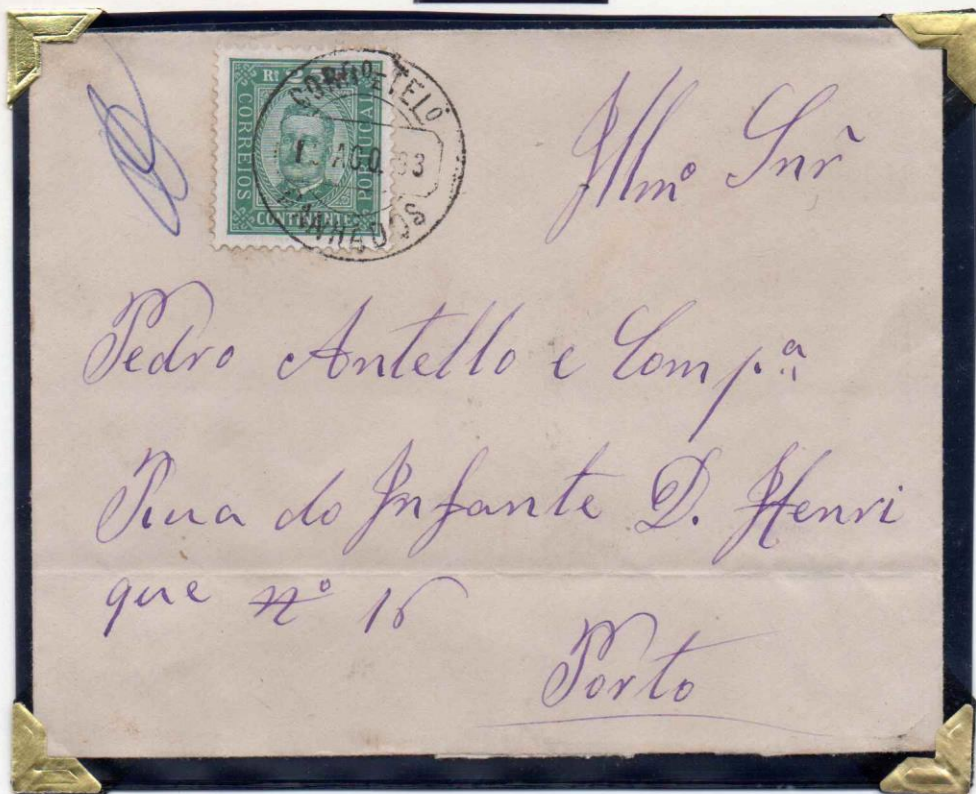 Rs 2
CORREIOS
PORTUGAL
CONTINENTE
CORRº E TELº
AGO. 93
Illmº Snr̃
Pedro Antello e Compª
Rua do Infante D. Henri
que nº 16
Porto